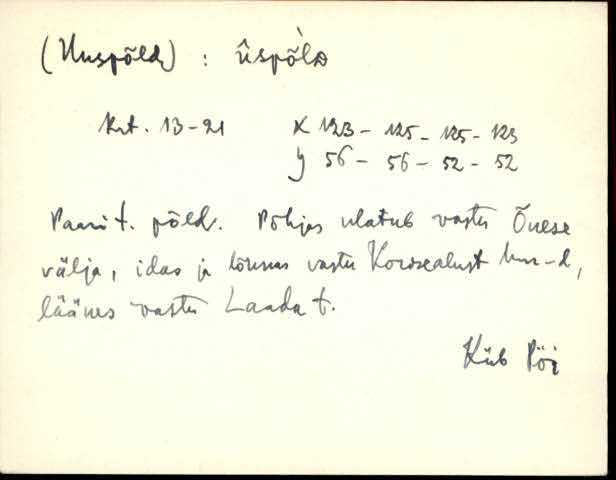 (Uuspõld) : ûspòlD
Krt. 13-21 X 123 - 125 - 125 - 123
y 56 - 56 - 52 - 52
Paari t. põld. Põhjas ulatub vastu Õuese
välja, idas ja lõunas vastu
läänes vastu Laada t.
Küb Pöi